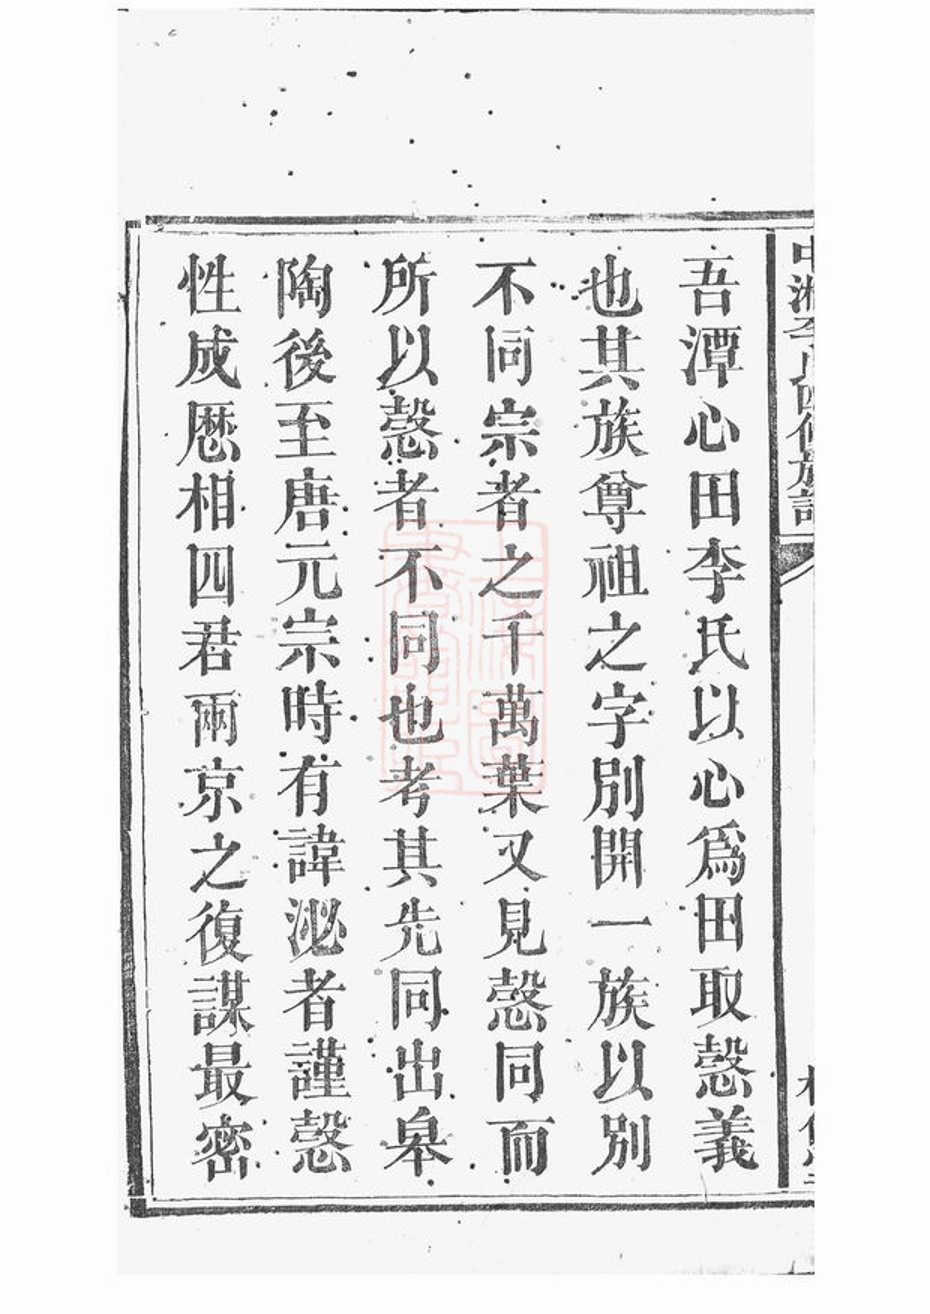 中湘李氏四修族譜
吾潭心田李氏以心爲田取愨義
也其族尊祖之字別開一族以別
不同宗者之千萬葉又見愨同而
所以愨者不同也考其先同出皋
陶後至唐元宗時有諱泌者謹愨
性成厯相四君兩京之復謀最密